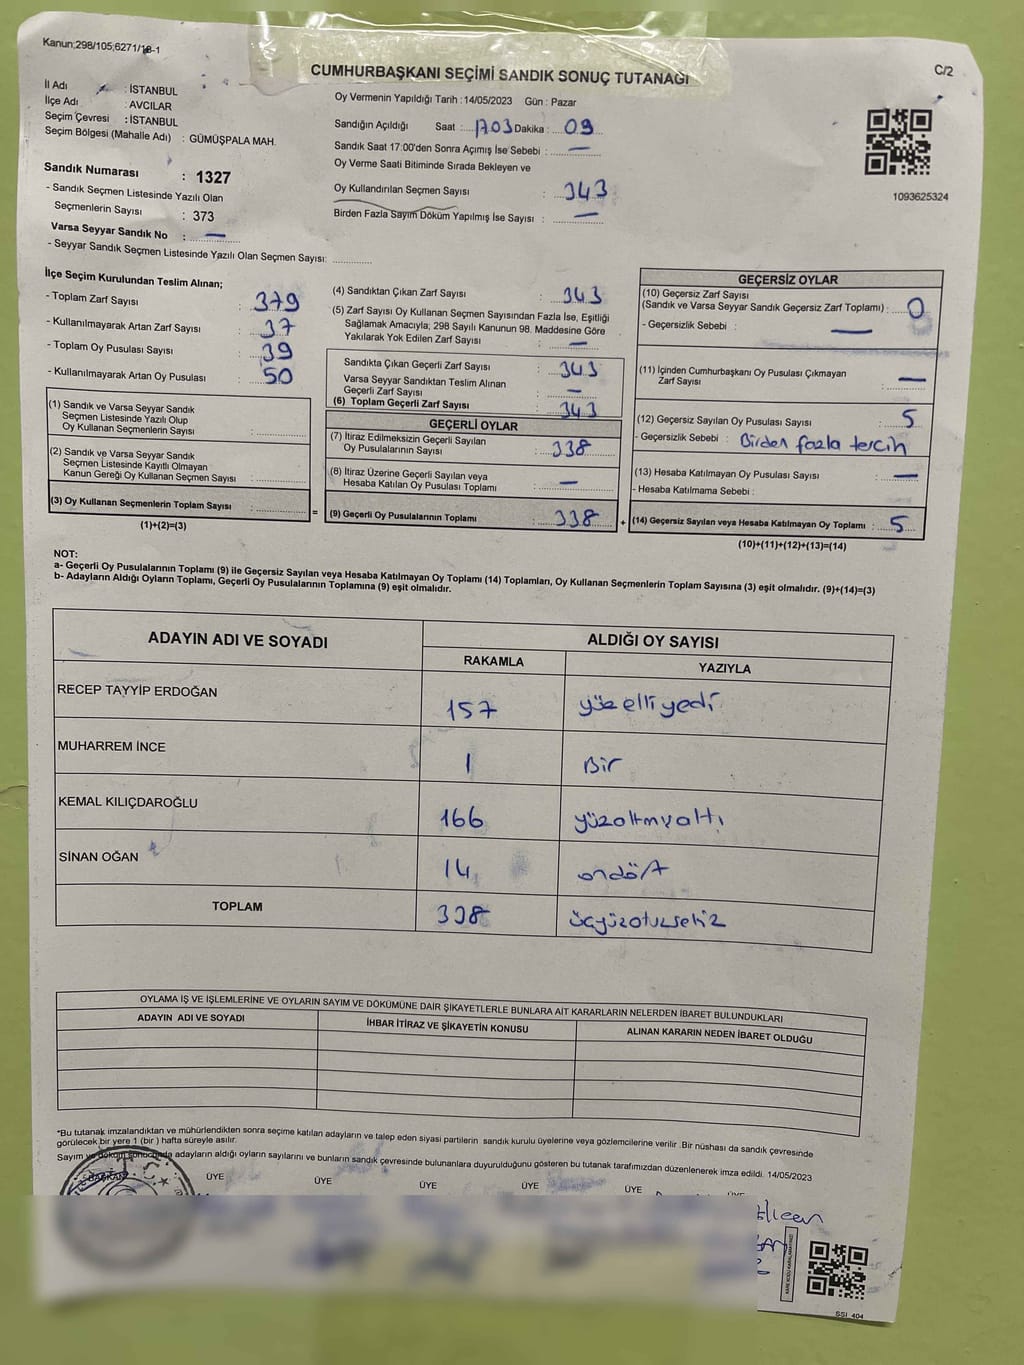 Kanun;298/105;6271/18-1
CUMHURBAŞKANI SEÇİMİ SANDIK SONUÇ TUTANAĞI
C/2
İl Adı : İSTANBUL
İlçe Adı : AVCILAR
Seçim Çevresi : İSTANBUL
Seçim Bölgesi (Mahalle Adı) : GÜMÜŞPALA MAH.
Sandık Numarası : 1327
- Sandık Seçmen Listesinde Yazılı Olan
Seçmenlerin Sayısı : 373
Varsa Seyyar Sandık No : —
- Seyyar Sandık Seçmen Listesinde Yazılı Olan Seçmen Sayısı: ............
Oy Vermenin Yapıldığı Tarih : 14/05/2023 Gün : Pazar
Sandığın Açıldığı Saat : 1703 Dakika : 09
Sandık Saat 17:00'den Sonra Açılmış İse Sebebi : —
Oy Verme Saati Bitiminde Sırada Bekleyen ve
Oy Kullandırılan Seçmen Sayısı : 343
Birden Fazla Sayım Döküm Yapılmış İse Sayısı : —
1093625324
İlçe Seçim Kurulundan Teslim Alınan;
- Toplam Zarf Sayısı : 379
- Kullanılmayarak Artan Zarf Sayısı : 37
- Toplam Oy Pusulası Sayısı : 39
- Kullanılmayarak Artan Oy Pusulası : 50
(1) Sandık ve Varsa Seyyar Sandık
Seçmen Listesinde Yazılı Olup
Oy Kullanan Seçmenlerin Sayısı : ............
(2) Sandık ve Varsa Seyyar Sandık
Seçmen Listesinde Kayıtlı Olmayan
Kanun Gereği Oy Kullanan Seçmen Sayısı : ............
(3) Oy Kullanan Seçmenlerin Toplam Sayısı : ............
(1)+(2)=(3)
(4) Sandıktan Çıkan Zarf Sayısı : 343
(5) Zarf Sayısı Oy Kullanan Seçmen Sayısından Fazla İse, Eşitliği
Sağlamak Amacıyla; 298 Sayılı Kanunun 98. Maddesine Göre
Yakılarak Yok Edilen Zarf Sayısı : —
Sandıkta Çıkan Geçerli Zarf Sayısı : 343
Varsa Seyyar Sandıktan Teslim Alınan
Geçerli Zarf Sayısı : —
(6) Toplam Geçerli Zarf Sayısı : 343
GEÇERLİ OYLAR
(7) İtiraz Edilmeksizin Geçerli Sayılan
Oy Pusulalarının Sayısı : 338
(8) İtiraz Üzerine Geçerli Sayılan veya
Hesaba Katılan Oy Pusulası Toplamı : —
= (9) Geçerli Oy Pusulalarının Toplamı : 338 +
GEÇERSİZ OYLAR
(10) Geçersiz Zarf Sayısı
(Sandık ve Varsa Seyyar Sandık Geçersiz Zarf Toplamı) : 0
- Geçersizlik Sebebi : —
(11) İçinden Cumhurbaşkanı Oy Pusulası Çıkmayan
Zarf Sayısı : —
(12) Geçersiz Sayılan Oy Pusulası Sayısı : 5
- Geçersizlik Sebebi : Birden fazla tercih
(13) Hesaba Katılmayan Oy Pusulası Sayısı : —
- Hesaba Katılmama Sebebi :
(14) Geçersiz Sayılan veya Hesaba Katılmayan Oy Toplamı : 5
(10)+(11)+(12)+(13)=(14)
NOT:
a- Geçerli Oy Pusulalarının Toplamı (9) ile Geçersiz Sayılan veya Hesaba Katılmayan Oy Toplamı (14) Toplamları, Oy Kullanan Seçmenlerin Toplam Sayısına (3) eşit olmalıdır. (9)+(14)=(3)
b- Adayların Aldığı Oyların Toplamı, Geçerli Oy Pusulalarının Toplamına (9) eşit olmalıdır.
ADAYIN ADI VE SOYADI ALDIĞI OY SAYISI
RAKAMLA YAZIYLA
RECEP TAYYİP ERDOĞAN 157 yüzelliyedi
MUHARREM İNCE 1 Bir
KEMAL KILIÇDAROĞLU 166 yüzaltmışaltı
SİNAN OĞAN 14 ondört
TOPLAM 338 üçyüzotuzsekiz
OYLAMA İŞ VE İŞLEMLERİNE VE OYLARIN SAYIM VE DÖKÜMÜNE DAİR ŞİKAYETLERLE BUNLARA AİT KARARLARIN NELERDEN İBARET BULUNDUKLARI
ADAYIN ADI VE SOYADI İHBAR İTİRAZ VE ŞİKAYETİN KONUSU ALINAN KARARIN NEDEN İBARET OLDUĞU
*Bu tutanak imzalandıktan ve mühürlendikten sonra seçime katılan adayların ve talep eden siyasi partilerin sandık kurulu üyelerine veya gözlemcilerine verilir .Bir nüshası da sandık çevresinde
görülecek bir yere 1 (bir ) hafta süreyle asılır.
Sayım ve döküm sonucunda adayların aldığı oyların sayılarını ve bunların sandık çevresinde bulunanlara duyurulduğunu gösteren bu tutanak tarafımızdan düzenlenerek imza edildi. 14/05/2023
BAŞKAN ÜYE ÜYE ÜYE ÜYE ÜYE ÜYE
T.C.
SSI 404